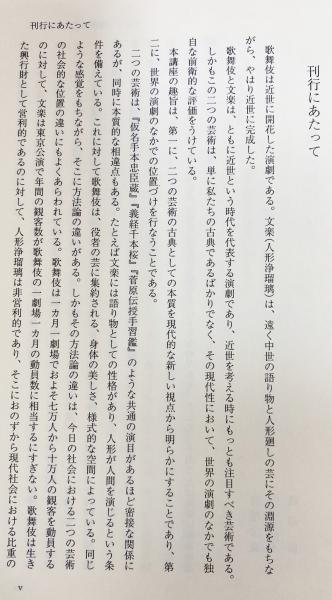 刊行にあたって
刊行にあたって
歌舞伎は近世に開花した演劇である。文楽(人形浄瑠璃)は、遠く中世の語り物と人形廻しの芸にその淵源をもちな
がら、やはり近世に完成した。
歌舞伎と文楽は、ともに近世という時代を代表する演劇であり、近世を考える時にもっとも注目すべき芸術である。
しかもこの二つの芸術は、単に私たちの古典であるばかりでなく、その現代性において、世界の演劇のなかでも独
自な前衛的な評価をうけている。
本講座の趣旨は、第一に、二つの芸術の古典としての本質を現代的な新しい視点から明らかにすることであり、第
二に、世界の演劇のなかでの位置づけを行なうことである。
二つの芸術は、『仮名手本忠臣蔵』『義経千本桜』『菅原伝授手習鑑』のような共通の演目があるほど密接な関係に
あるが、同時に本質的な相違点もある。たとえば文楽には語り物としての性格があり、人形が人間を演じるという条
件を備えている。これに対して歌舞伎は、役者の芸に集約される、身体の美しさ、様式的な空間によっている。同じ
ような感覚をもちながら、そこに方法論の違いがある。しかもその方法論の違いは、今日の社会における二つの芸術
の社会的な位置の違いにもよくあらわれている。歌舞伎は一カ月一劇場でおよそ七万人から十万人の観客を動員する
のに対して、文楽は東京公演で年間の観客数が歌舞伎の一劇場一カ月の動員数に相当するにすぎない。歌舞伎は生き
た興行財として営利的であるのに対して、人形浄瑠璃は非営利的であり、そこにおのずから現代社会における比重の
v